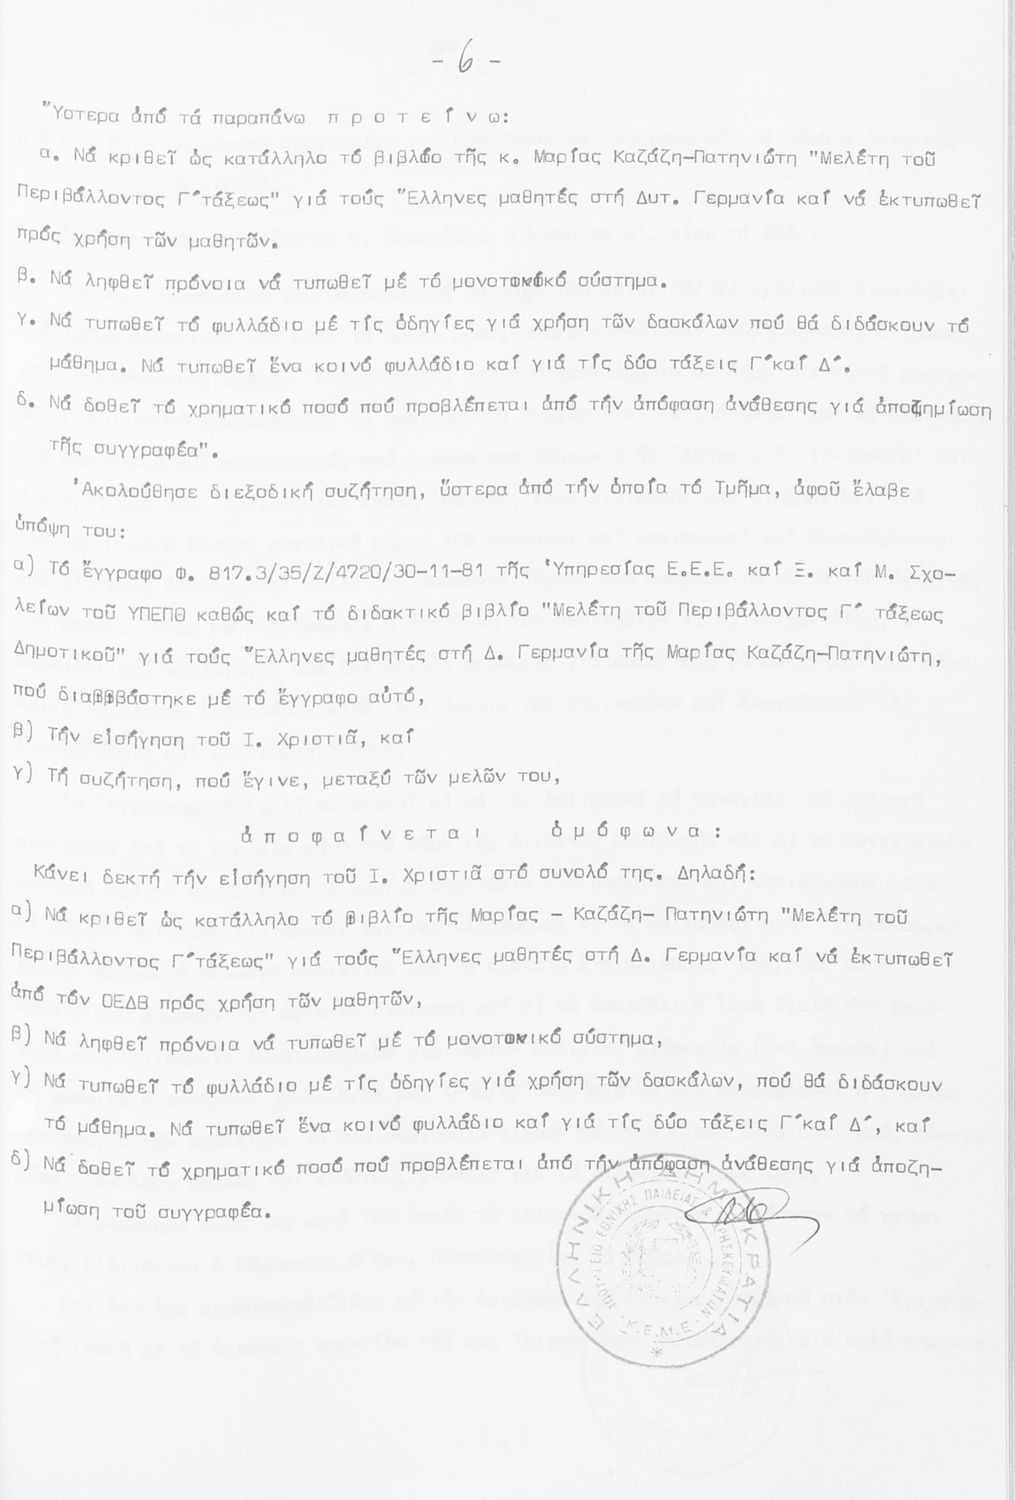 - 6 -
Ὕστερα ἀπό τά παραπάνω π ρ ο τ ε ί ν ω:
α. Νά κριθεῖ ὡς κατάλληλο τό βιβλίο τῆς κ. Μαρίας Καζάζη-Πατηνιώτη "Μελέτη τοῦ
Περιβάλλοντος Γ΄τάξεως" γιά τούς Ἕλληνες μαθητές στή Δυτ. Γερμανία καί νά ἐκτυπωθεῖ
πρός χρήση τῶν μαθητῶν.
β. Νά ληφθεῖ πρόνοια νά τυπωθεῖ μέ τό μονοτονικό σύστημα.
γ. Νά τυπωθεῖ τό φυλλάδιο μέ τίς ὁδηγίες γιά χρήση τῶν δασκάλων πού θά διδάσκουν τό
μάθημα. Νά τυπωθεῖ ἕνα κοινό φυλλάδιο καί γιά τίς δύο τάξεις Γ΄καί Δ΄.
δ. Νά δοθεῖ τό χρηματικό ποσό πού προβλέπεται ἀπό τήν ἀπόφαση ἀνάθεσης γιά ἀποζημίωση
τῆς συγγραφέα".
Ἀκολούθησε διεξοδική συζήτηση, ὕστερα ἀπό τήν ὁποία τό Τμῆμα, ἀφοῦ ἔλαβε
ὑπόψη του:
α) Τό ἔγγραφο Φ. 817.3/35/Ζ/4720/30-11-81 τῆς Ὑπηρεσίας Ε.Ε.Ε. καί Ξ. καί Μ. Σχο-
λείων τοῦ ΥΠΕΠΘ καθώς καί τό διδακτικό βιβλίο "Μελέτη τοῦ Περιβάλλοντος Γ΄ τάξεως
Δημοτικοῦ" γιά τούς Ἕλληνες μαθητές στή Δ. Γερμανία τῆς Μαρίας Καζάζη-Πατηνιώτη,
πού διαβιβάστηκε μέ τό ἔγγραφο αὐτό,
β) Τήν εἰσήγηση τοῦ Ι. Χριστιᾶ, καί
γ) Τή συζήτηση, πού ἔγινε, μεταξύ τῶν μελῶν του,
ἀ π ο φ α ί ν ε τ α ι ὁ μ ό φ ω ν α :
Κάνει δεκτή τήν εἰσήγηση τοῦ Ι. Χριστιᾶ στό συνολό της. Δηλαδή:
α) Νά κριθεῖ ὡς κατάλληλο τό βιβλίο τῆς Μαρίας - Καζάζη- Πατηνιώτη "Μελέτη τοῦ
Περιβάλλοντος Γ΄τάξεως" γιά τούς Ἕλληνες μαθητές στή Δ. Γερμανία καί νά ἐκτυπωθεῖ
ἀπό τόν ΟΕΔΒ πρός χρήση τῶν μαθητῶν,
β) Νά ληφθεῖ πρόνοια νά τυπωθεῖ μέ τό μονοτονικό σύστημα,
γ) Νά τυπωθεῖ τό φυλλάδιο μέ τίς ὁδηγίες γιά χρήση τῶν δασκάλων, πού θά διδάσκουν
τό μάθημα. Νά τυπωθεῖ ἕνα κοινό φυλλάδιο καί γιά τίς δύο τάξεις Γ΄καί Δ΄, καί
δ) Νά δοθεῖ τό χρηματικό ποσό πού προβλέπεται ἀπό τήν ἀπόφαση ἀνάθεσης γιά ἀποζη-
μίωση τοῦ συγγραφέα.
ΕΛΛΗΝΙΚΗ ΔΗΜΟΚΡΑΤΙΑ
ΥΠΟΥΡΓΕΙΟ ΕΘΝΙΚΗΣ ΠΑΙΔΕΙΑΣ & ΘΡΗΣΚΕΥΜΑΤΩΝ
Κ.Ε.Μ.Ε